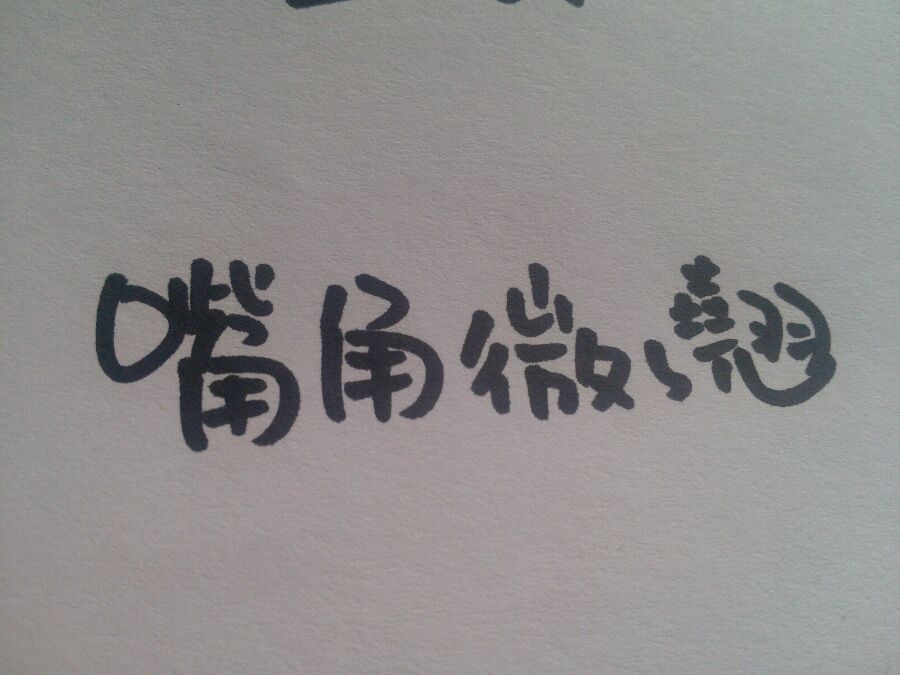 嘴角微翘